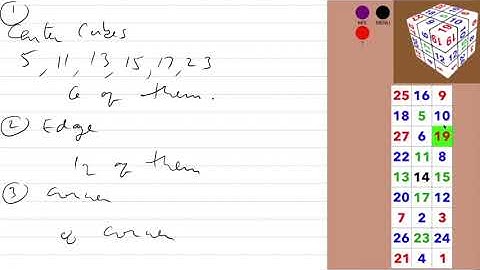 1
Center Cubes
5, 11, 13, 15, 17, 23
6 of them.
2 Edge
12 of them
3 corner
of corner
25 16 9
18 5 10
27 6 19
22 11 8
13 14 15
20 17 12
7 2 3
26 23 24
21 4 1